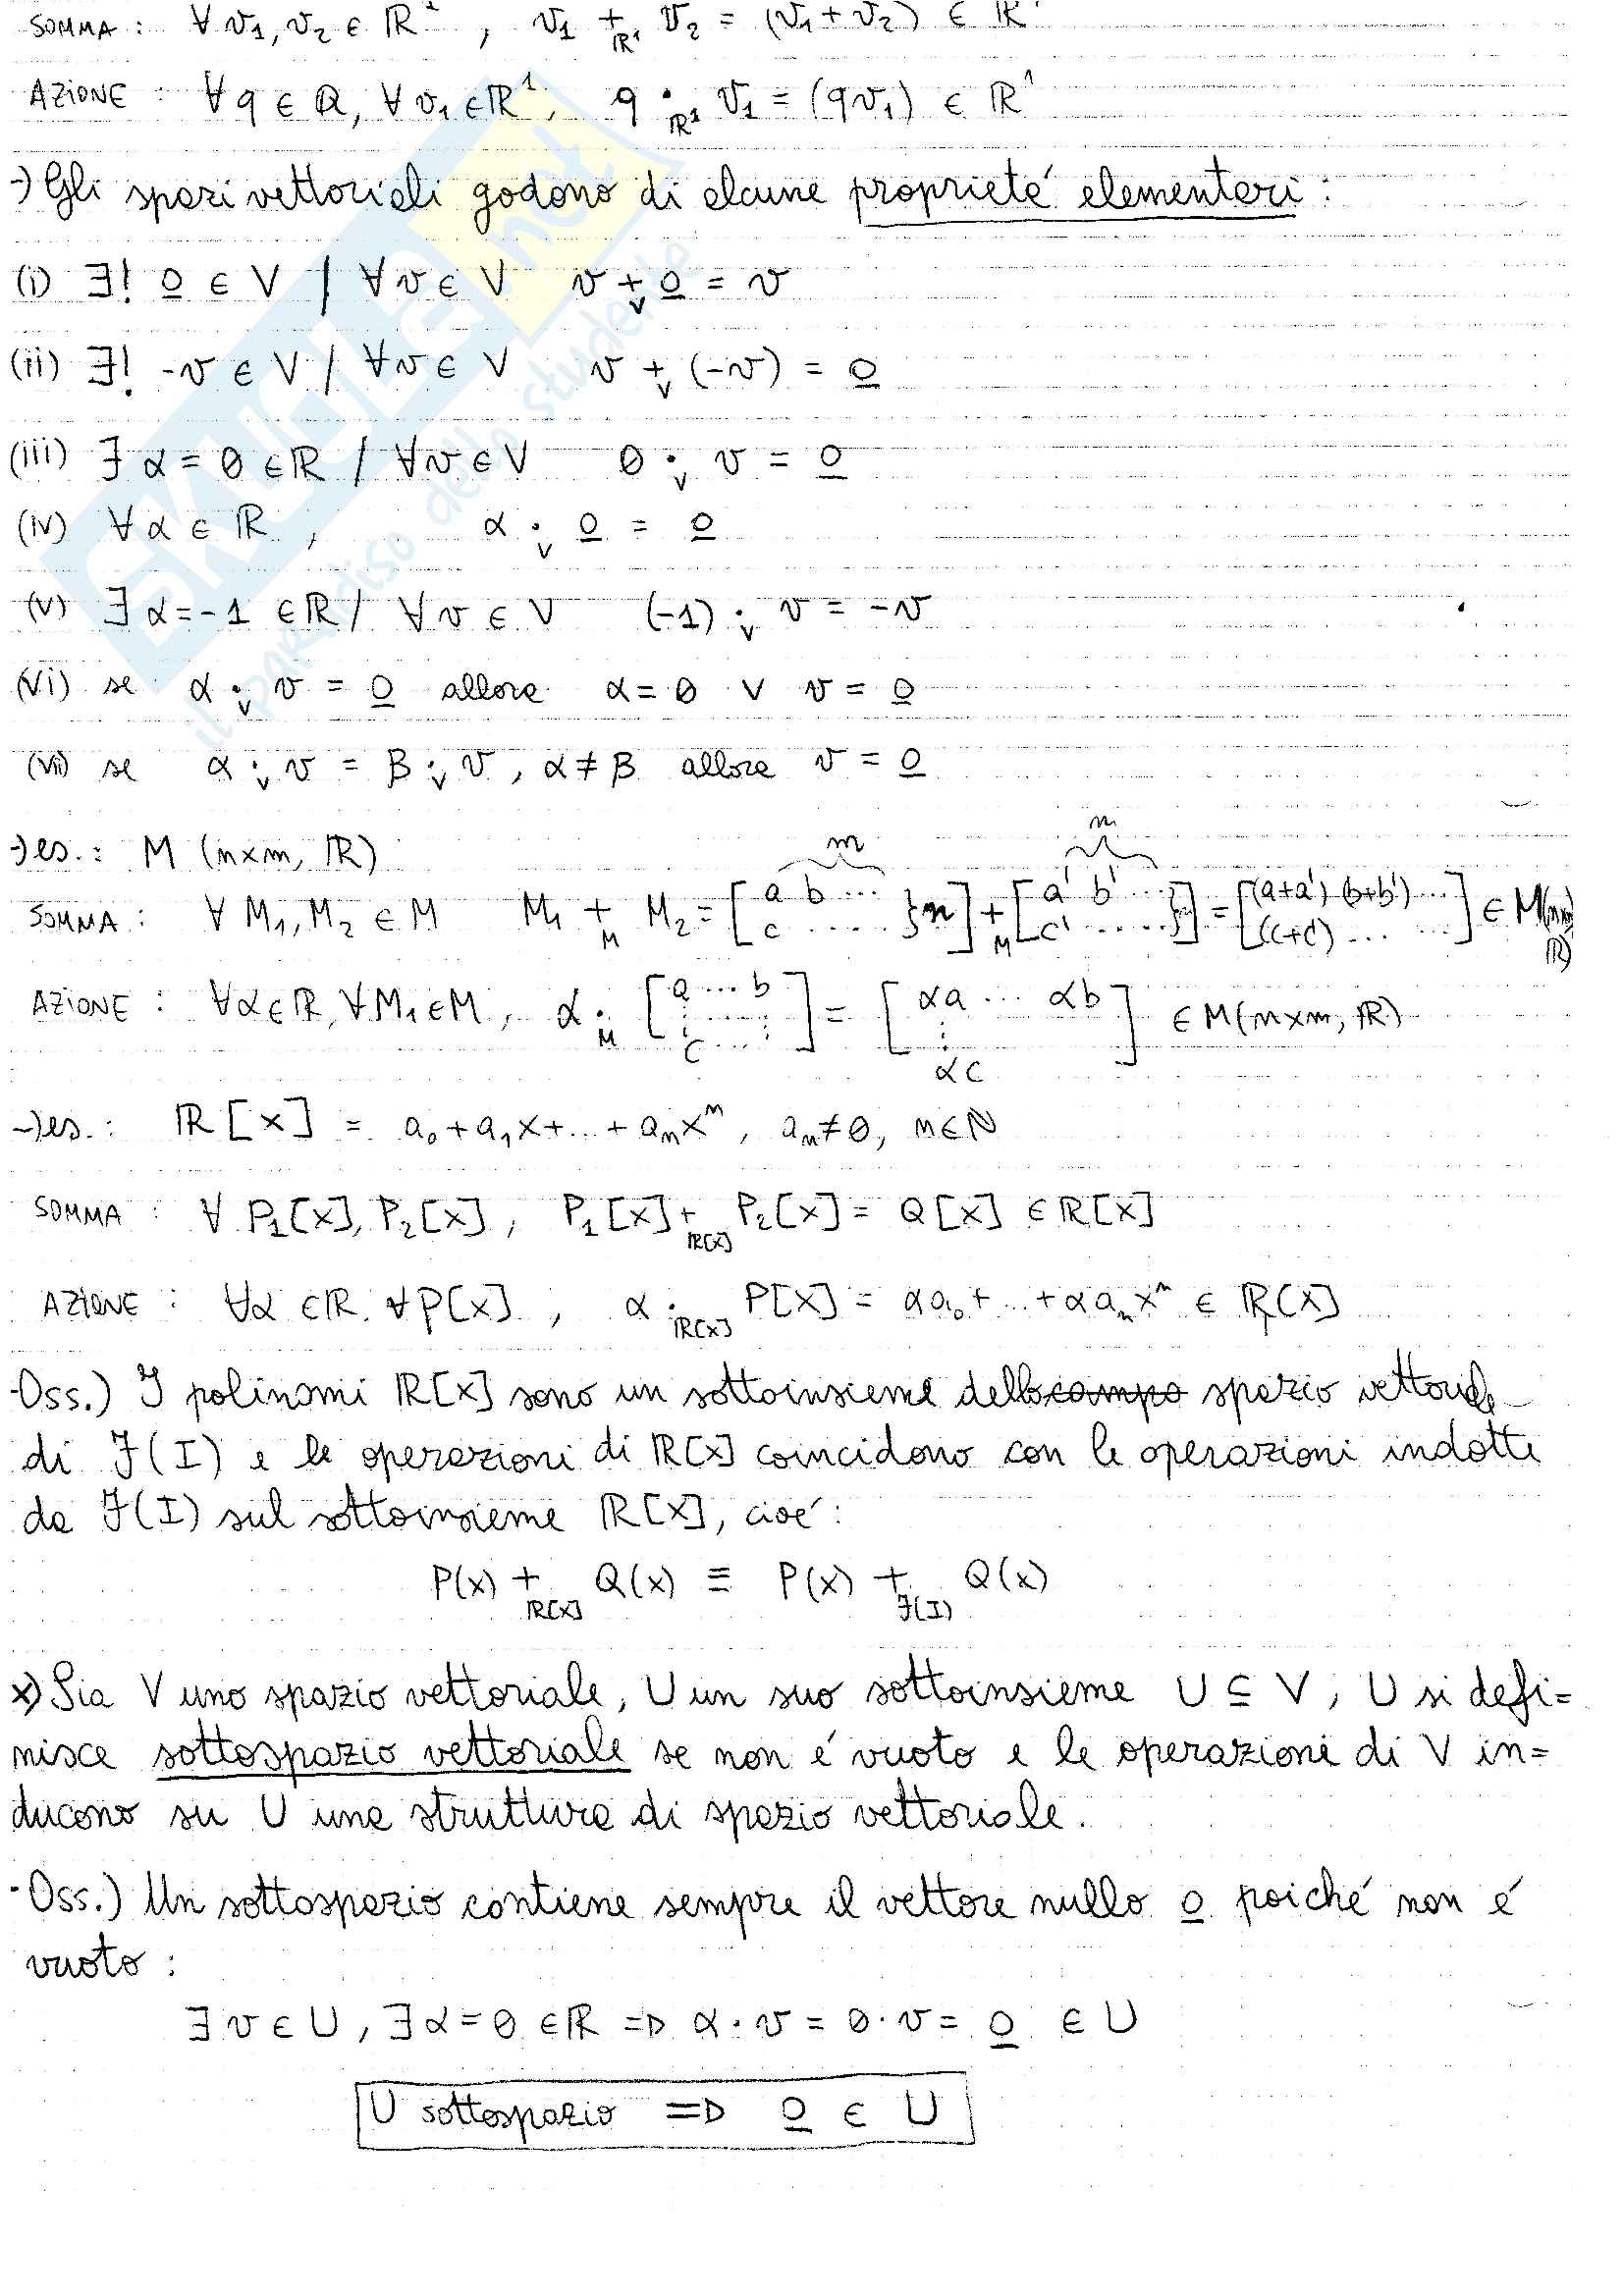 SOMMA : ∀ v₁, v₂ ∈ ℝ¹ , v₁ +_ℝ¹ v₂ = (v₁ + v₂) ∈ ℝ¹
AZIONE : ∀ q ∈ Q, ∀ v₁ ∈ ℝ¹, q •_ℝ¹ v₁ = (qv₁) ∈ ℝ¹
→) Gli spazi vettoriali godono di alcune proprietá elementari :
(i) ∃! 0 ∈ V / ∀ v ∈ V v +_V 0 = v
(ii) ∃! -v ∈ V / ∀ v ∈ V v +_V (-v) = 0
(iii) ∃ α = 0 ∈ ℝ / ∀ v ∈ V 0 •_V v = 0
(iv) ∀ α ∈ ℝ , α •_V 0 = 0
(v) ∃ α = -1 ∈ ℝ / ∀ v ∈ V (-1) •_V v = -v
(vi) se α •_V v = 0 allora α = 0 ∨ v = 0
(vii) se α •_V v = β •_V v , α ≠ β allora v = 0
→) es. : M (n×m, ℝ)
SOMMA : ∀ M₁, M₂ ∈ M M₁ +_M M₂ = [a b ... c ..... }n] +_M [a' b' ... c' ..... ] = [(a+a') (b+b') ... (c+c') ... ...] ∈ M(n×m, ℝ)
AZIONE : ∀ α ∈ ℝ, ∀ M₁ ∈ M , α •_M [a ... b ⋮ ..... ⋮ c ... ⋮] = [αa ... αb ⋮ αc] ∈ M(n×m, ℝ)
→) es. : ℝ[x] = a₀ + a₁x + ... + aₙxⁿ , aₙ ≠ 0, n ∈ ℕ
SOMMA : ∀ P₁[x], P₂[x] , P₁[x] +_ℝ[x] P₂[x] = Q[x] ∈ ℝ[x]
AZIONE : ∀ α ∈ ℝ, ∀ P[x] , α •_ℝ[x] P[x] = αa₀ + ... + αaₙxⁿ ∈ ℝ[x]
-Oss.) I polinomi ℝ[x] sono un sottoinsieme dello campo spazio vettoriale
di F(I) e le operazioni di ℝ[x] coincidono con le operazioni indotte
da F(I) sul sottoinsieme ℝ[x], cioé :
P(x) +_ℝ[x] Q(x) ≡ P(x) +_F(I) Q(x)
x) Sia V uno spazio vettoriale, U un suo sottoinsieme U ⊆ V , U si defi=
nisce sottospazio vettoriale se non é vuoto e le operazioni di V in=
ducono su U una struttura di spazio vettoriale.
-Oss.) Un sottospazio contiene sempre il vettore nullo 0 poiché non é
vuoto :
∃ v ∈ U , ∃ α = 0 ∈ ℝ => α · v = 0 · v = 0 ∈ U
U sottospazio => 0 ∈ U
SKUOLA.net
il paradiso dello studente